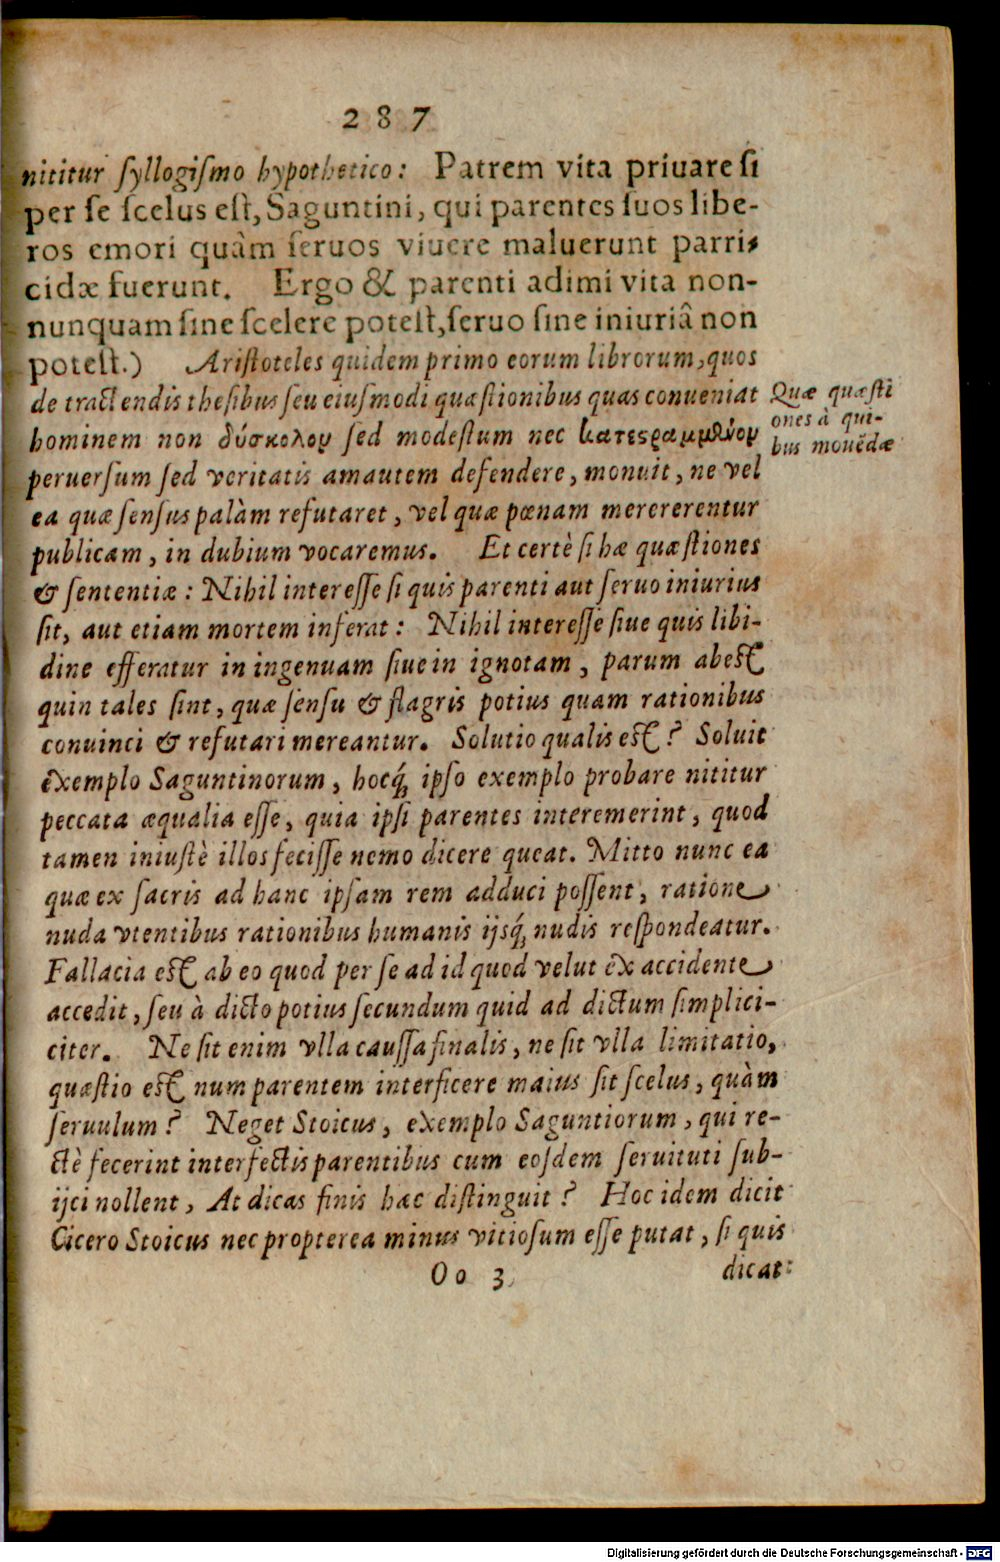 287
nititur ſyllogiſmo hypothetico: Patrem vita priuare ſi
per ſe ſcelus eſt, Saguntini, qui parentes ſuos libe-
ros emori quàm ſeruos viuere maluerunt parri-
cidæ fuerunt. Ergo & parenti adimi vita non-
nunquam ſine ſcelere poteſt, ſeruo ſine iniuriâ non
poteſt.) Ariſtoteles quidem primo eorum librorum, quos
de tractendis theſibus ſeu eiuſmodi quæſtionibus quas conueniat
hominem non δύσκολον ſed modeſtum nec
peruerſum ſed veritatis amautem defendere, monuit, ne vel
ea quæ ſenſus palàm refutaret, vel quæ pœnam mercrerentur
publicam, in dubium vocaremus. Et certè ſi hæ quæſtiones
& ſententiæ: Nihil intereſſe ſi quis parenti aut ſeruo iniurius
ſit, aut etiam mortem inferat: Nihil intereſſe ſiue quis libi-
dine efferatur in ingenuam ſiue in ignotam, parum abeſt
quin tales ſint, quæ ſenſu & flagris potius quam rationibus
conuinci & refutari mereantur. Solutio qualis eſt? Soluit
exemplo Saguntinorum, hocq́; ipſo exemplo probare nititur
peccata æqualia eſſe, quia ipſi parentes interemerint, quod
tamen iniuſtè illos feciſſe nemo dicere queat. Mitto nunc ea
quæ ex ſacris ad hanc ipſam rem adduci poſſent, ratione
nuda vtentibus rationibus humanis ijsq́; nudis reſpondeatur.
Fallacia eſt ab eo quod per ſe ad id quod velut ex accidente
accedit, ſeu à dicto potius ſecundum quid ad dictum ſimplici-
citer. Ne ſit enim vlla cauſſa finalis, ne ſit vlla limitatio,
quæſtio eſt num parentem interficere maius ſit ſcelus, quàm
ſeruulum? Neget Stoicus, exemplo Saguntiorum, qui re-
ctè fecerint interfectis parentibus cum eoſdem ſeruituti ſub-
ijci nollent, At dicas finis hæc diſtinguit? Hoc idem dicit
Cicero Stoicus nec propterea minus vitioſum eſſe putat, ſi quis
Oo 3
dicat:
Quæ quæſti
ones à qui-
bus mouẽdæ
Digitalisierung gefördert durch die Deutsche Forschungsgemeinschaft - DFG